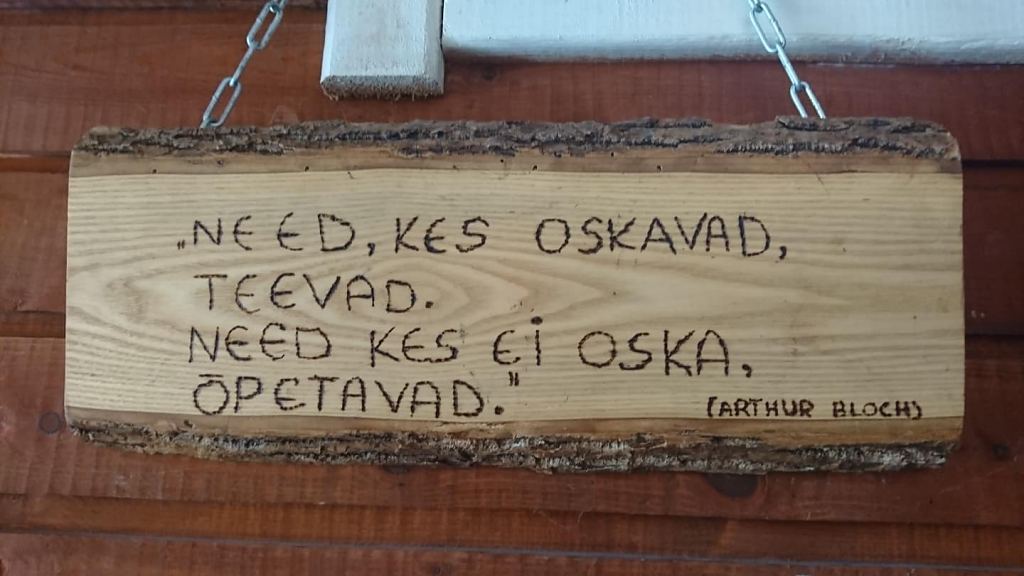 „NEED, KES OSKAVAD,
TEEVAD.
NEED KES Ei OSKA,
ÕPETAVAD."
(ARTHUR BLOCH)